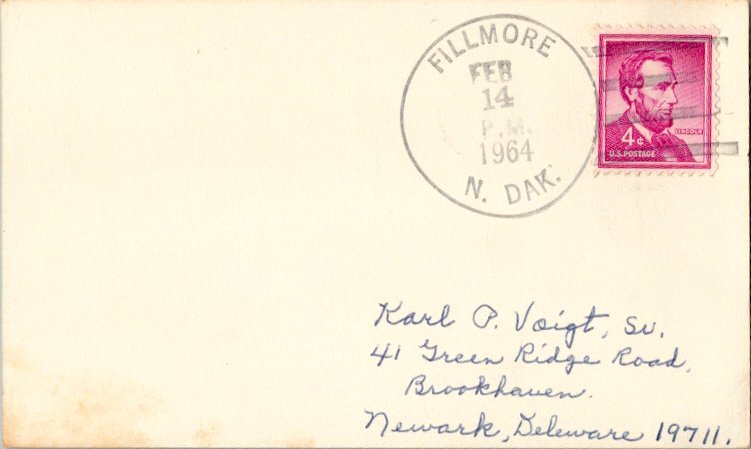 FILLMORE
FEB
14
P.M.
1964
N. DAK.
LINCOLN
4¢
U.S. POSTAGE
Karl P. Voigt, Sr.
41 Green Ridge Road,
Brookhaven.
Newark, Deleware 19711.